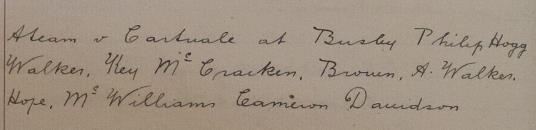 A team v Cartvale at Busby Philip Hogg
Walker, Key McCracken, Brown, A. Walker,
Hope, McWilliams Cameron Davidson